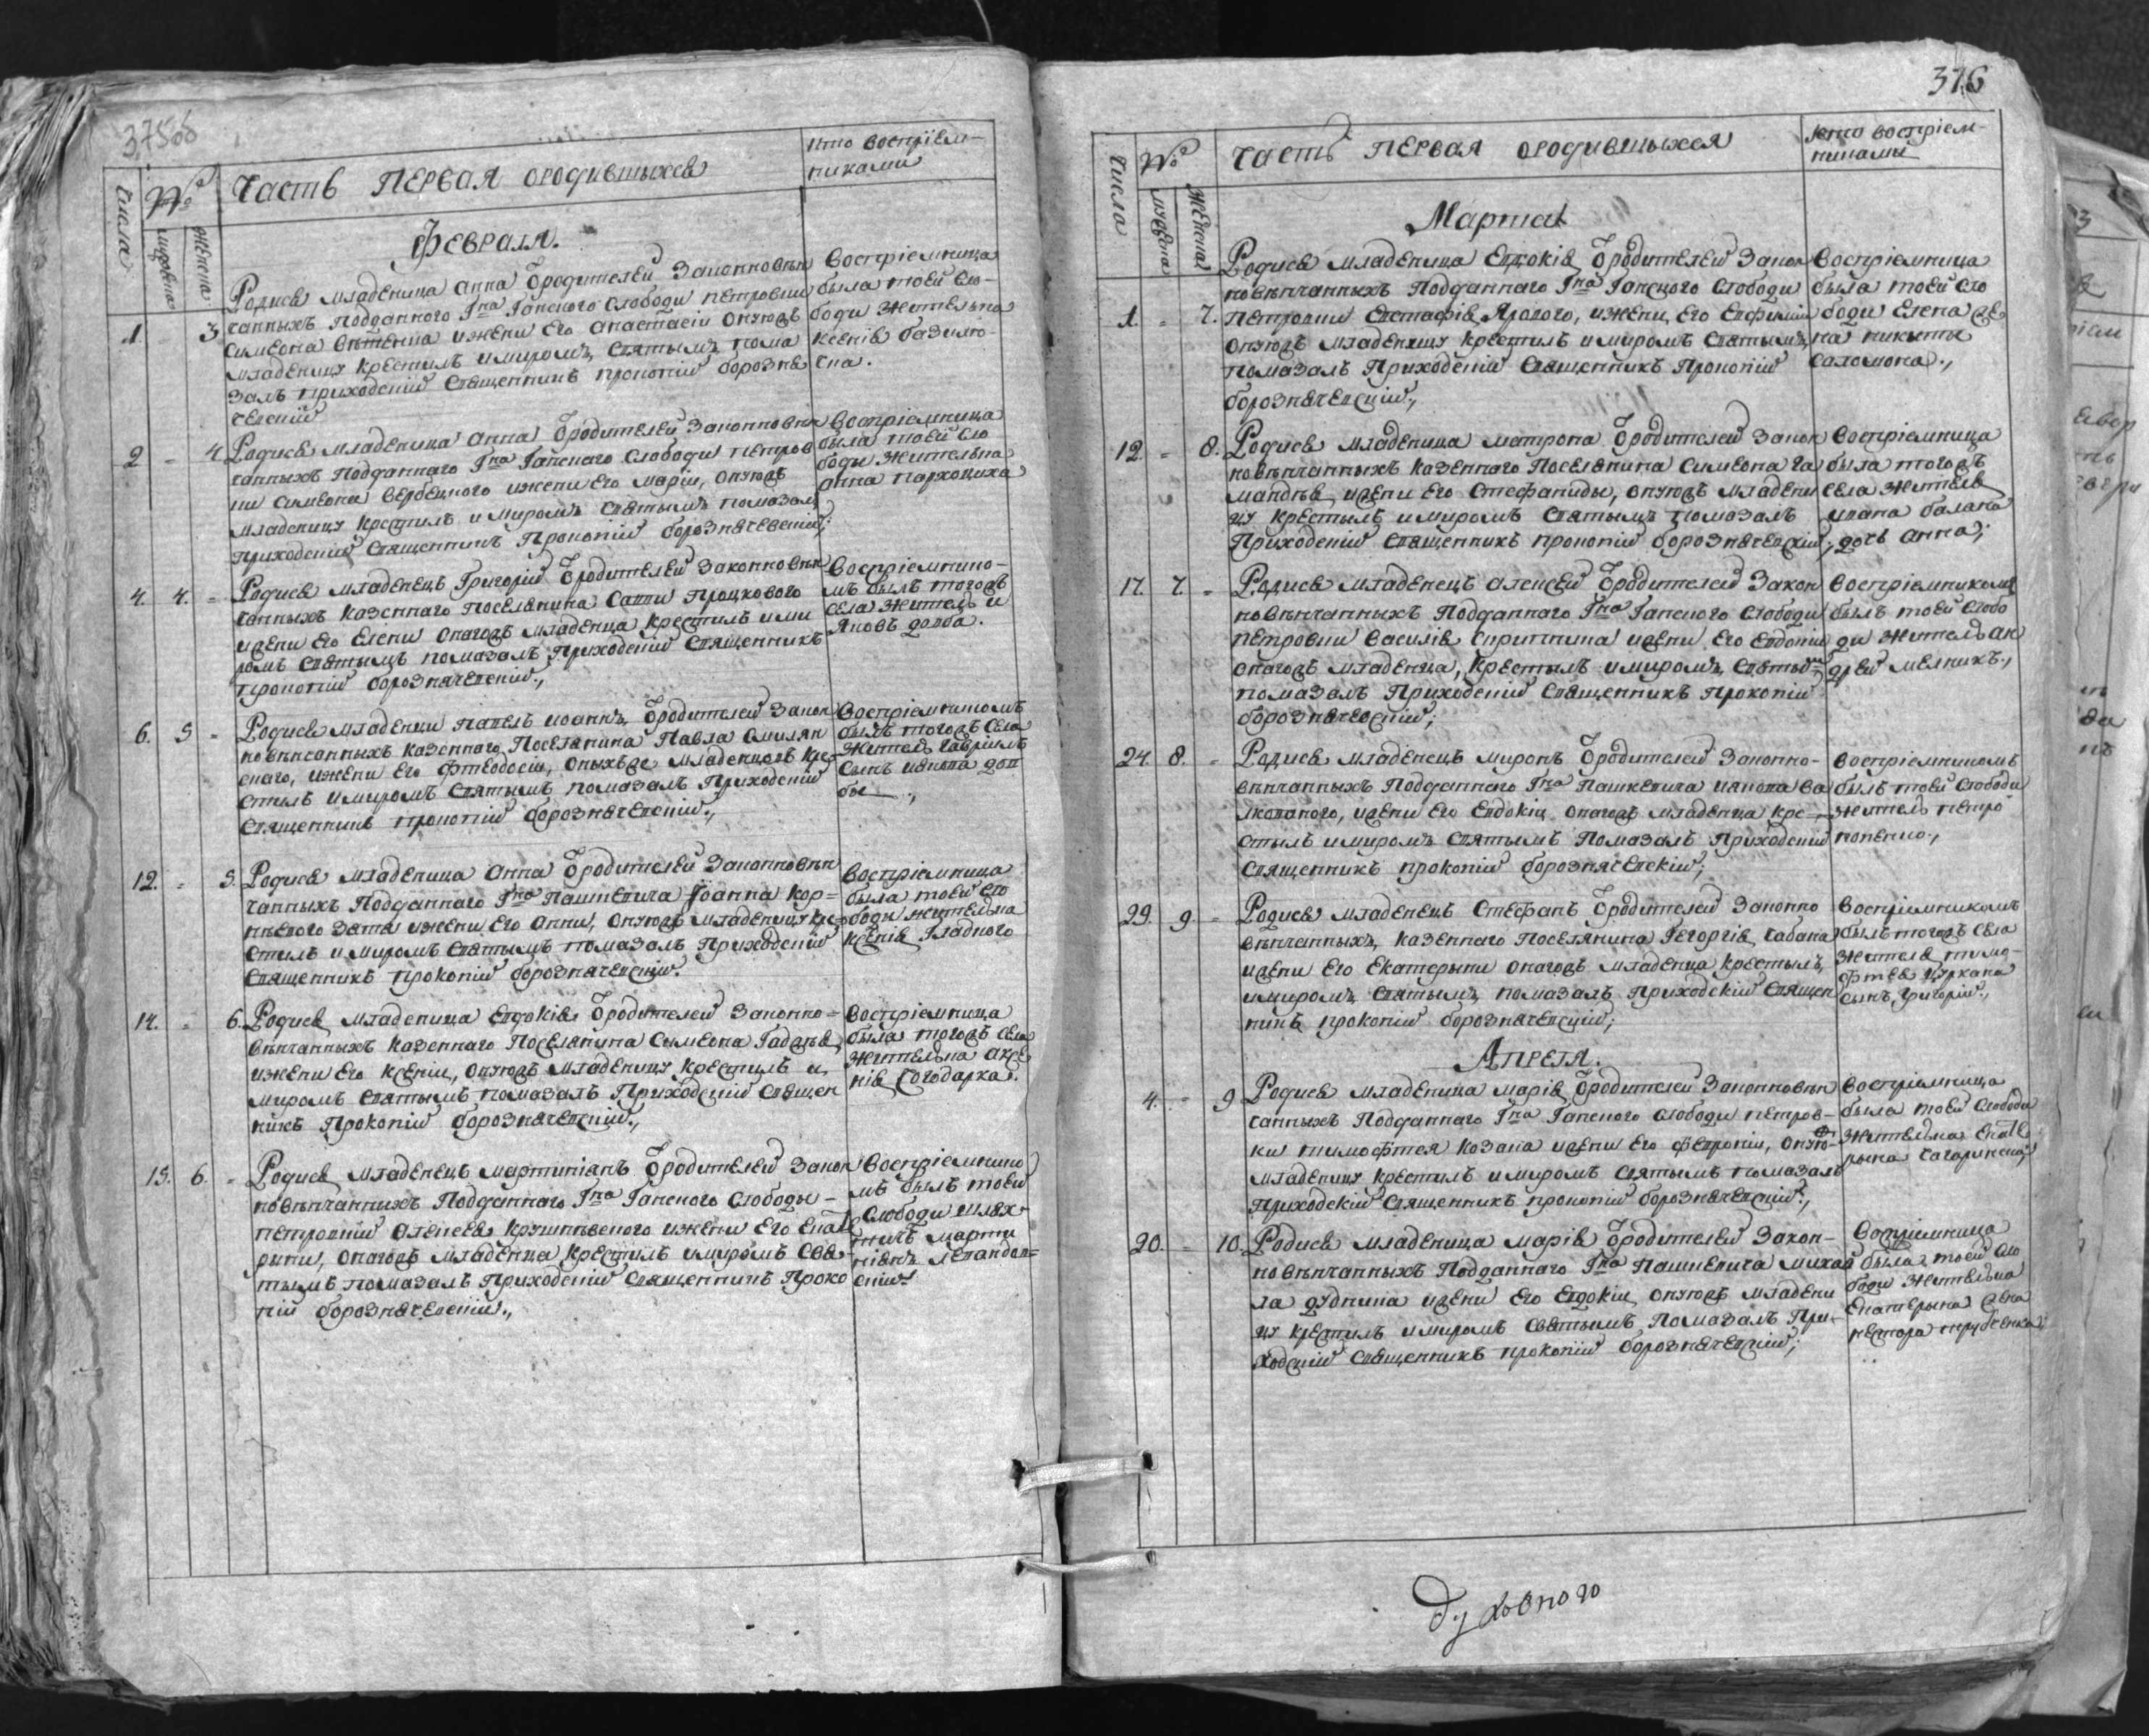 375об
Часть первая ородившыхся
кто восприем-
никами
Числа
№
мужеска
женска
Февраля.
1. - 3. Родися младеница Анна Ѿродителей законновѣн
чанныхъ Подданного Гна Ганского слободи Петровки
Симеона ижени его Анастасіи Оную жъ
младеницу крестилъ имиромъ святымъ пома
залъ приходскій священникъ Прокопій Борозня
чевскій
Воспріемница
была тоей сло-
боди жителька
Ксенія
2 - 4. Родися младеница Анна Ѿродителей законновѣн
чанныхъ Подданнаго Гна Ганскаго слободи Петров
ки Симеона Вербецкого ижени его Маріи, Оную жъ
младеницу крестилъ имиромъ святымъ помазалъ
приходскій священникъ Прокопій Борознячевскій;
Воспріемница
была тоей сло
боды жителька
Анна Пархомиха
4. 4. - Родися младенецъ Григорій Ѿродителей законновѣн
чанныхъ казеннаго поселянина Саввы Процкового
ижени его Елени Оногожъ младенца крестилъ ими
ромъ святымъ помазалъ приходскій священникъ
Прокопій Борознячевскій.,
Воспріемнико-
мъ былъ тогожъ
села житель и
Яковъ Довба.
6. 5 - Родися младенци Павелъ Иоаннъ Ѿродителей закон
новѣнчанныхъ казеннаго Поселянина Павла Смилян
ского, ижени его Фтеодосіи, Оныхже младенцовъ кре
стилъ имиромъ святымъ помазалъ Приходскій
священникъ Прокопій Борознячевскій.,
Воспріемникомъ
былъ тогожъ села
житель Гавріилъ
Сынъ Иакова Дов
бы .,
12. - 5. Родися младеница Анна Ѿродителей законновѣн
чанныхъ Подданнаго Гна Пашкевича Іоанна Кор=
нѣевого Зятя ижени его Анни, Онуюжъ младеницу кре-
стилъ имиромъ святымъ помазалъ Приходскій
Священникъ Прокопій Борознячевскій.
Воспріемница
была тоей сло
боди жителька
Ксенія Гладкого
14. - 6. Родися младеница Евдокія Ѿродителей законно=
вѣнчанныхъ казеннаго Поселянина Сымеона
ижени его Ксеніи, Онуюжъ младеницу крестилъ и
миромъ святымъ помазалъ Приходскій священ
никъ Прокопій Борознячевскій.,
Воспріемница
была тогожъ села
жителька
15. 6. - Родися младенецъ Мартиніанъ Ѿродителей закон
новѣнчанныхъ Подданнаго Гна Ганского слободы -
Петровки Алексея ижени его Екате
рини, Оногожъ младенца крестилъ имиромъ свя-
тымъ помазалъ Приходскій священникъ Проко
пій Борознячевскій.,
Воспріемнико
мъ былъ тоей
слободи шлях-
тичъ Марти
ніянъ
376
Числа
№
мужеска
женска
Часть первая ородившыхся
кто восприем-
никами
Марта
1. - 7. Родися младеница Евдокія Ѿродителей закон
новѣнчанныхъ Подданнаго Гна Ганского слободи
Петровки Евстафія Ярового, ижени его Евфиміи
Онуюжъ младеницу крестилъ имиромъ святымъ
помазалъ Приходскій священникъ Прокопій
Борознячевскій.,
Воспріемница
была тоей сло
боди Елена же
на Никиты
Саломона.,
12. - 8. Родися младеница Матрона Ѿродителей закон
новѣнчанныхъ казеннаго Поселянина Симеона Га
ижени его Стефаниды, Онуюжъ младени
цу крестылъ имиромъ святымъ помазалъ
Приходскій священникъ Прокопій Борознячевскій;
Воспріемница
была тогожъ
села жителя
Ивана Балана
дочь Анна;
17. 7. - Родися младенецъ Алексей Ѿродителей закон
новѣнчанныхъ Подданнаго Гна Ганского слободи
Петровки Василія Скрипника ижени его Евдокіи
Оногожъ младенца, крестылъ имиромъ святымъ
помазалъ Приходскій священникъ Прокопій
Борознячевскій;
Воспріемникомъ
былъ тоей слобо
ди житель Ан
дрей Мелникъ.,
24. 8. - Родися младенецъ Миронъ Ѿродителей законно-
вѣнчанныхъ Подданнаго Гна Пашкевича Иакова
ижени его Евдокіи Оногожъ младенца кре-
стылъ имиромъ святымъ помазалъ Приходскій
священникъ Прокопій Борознячевскій;
Воспріемникомъ
былъ тоей слободи
житель Петро
29. 9 - Родися младенецъ Стефанъ Ѿродителей законно
вѣнчанныхъ, казеннаго Поселянина Гегоргія Чабана
ижени его Екатерыни оногожъ младенца крестылъ,
имиромъ святымъ помазалъ Приходскій священ
никъ Прокопій Борознячевскій;
Воспріемникомъ
былъ тогожъ села
жителя Тимо-
фтея Цуркана
сынъ Григорій.,
Апреля.
4. - 9 Родися младеница Марія Ѿродителей законновѣн
чанныхъ Подданнаго Гна Ганского слободи Петров-
ки Тимофтея Козака ижени его Февроніи, Онуюжъ
младеницу крестилъ имиромъ святымъ помазалъ
Приходскій священникъ Прокопій Борознячевскій.,
Воспріемница
была тоей слободи
жителька Екате
рына
20. - 10. Родися младеница Марія Ѿродителей закон-
новѣнчанныхъ Подданнаго Гна Пашкевича Михай
ла Дудника ижени его Евдокіи Онуюжъ младени
цу крестилъ имиромъ святымъ помазалъ При-
ходскій священникъ Прокопій Борознячевскій;
Воспріемница
была тоей сло
боди жителька
Екатерына жена
Нестора
духовного